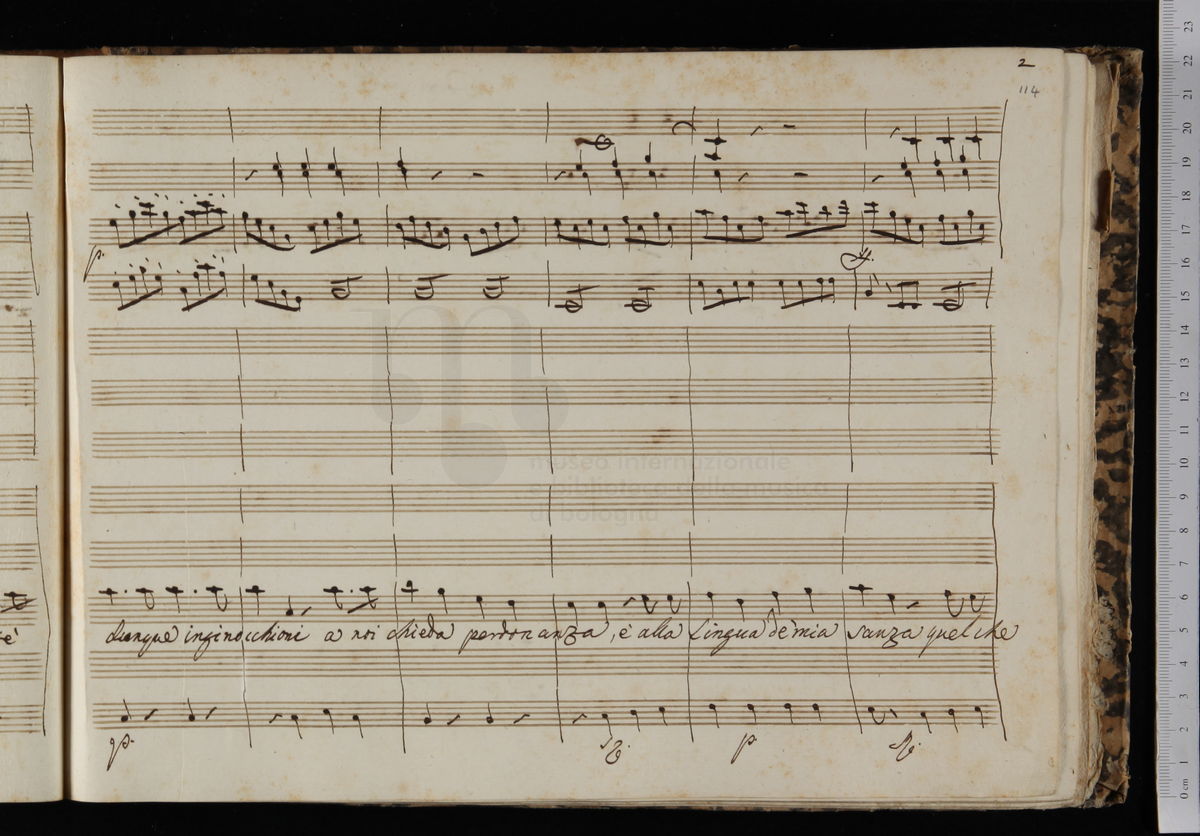 2
114
p.
museo internazionale
e biblioteca della musica
di bologna
dunque inginocchioni a noi chieda perdonanza, è alla Lingua de mia sanza quel che
p.
p
0 cm 1 2 3 4 5 6 7 8 9 10 11 12 13 14 15 16 17 18 19 20 21 22 23